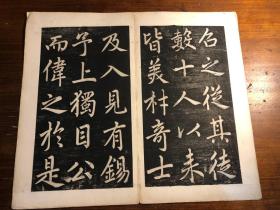 召之從其徒
數十人以来
皆美材奇士
及入見有錫
予上獨目公
而偉之於是